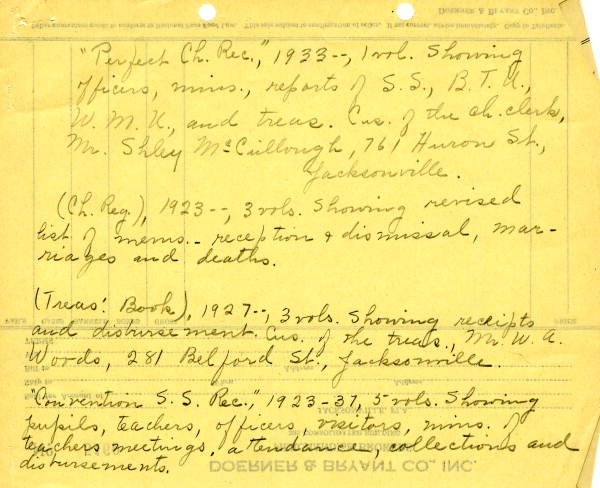 "Perfect Ch. Rec.," 1933--, 1 vol. Showing
officers, mins., reports of S.S., B.T.U.,
W.M.U., and treas. Cus. of the ch. clerk,
Mr. Shley McCullough, 761 Huron St.,
Jacksonville.
(Ch. Reg.), 1923--, 3 vols. Showing revised
list of mems. - reception & dismissal, mar-
riages and deaths.
(Treas.' Book), 1927--, 3 vols. Showing receipts
and disbursement. Cus. of the treas., Mr. W. A.
Woods, 281 Belford St., Jacksonville.
"Convention S.S. Rec.," 1923-37, 5 vols. Showing
pupils, teachers, officers, visitors, mins. of
teachers meetings, attendance, collections and
disbursements.
DOERNER & BRYANT CO., INC.